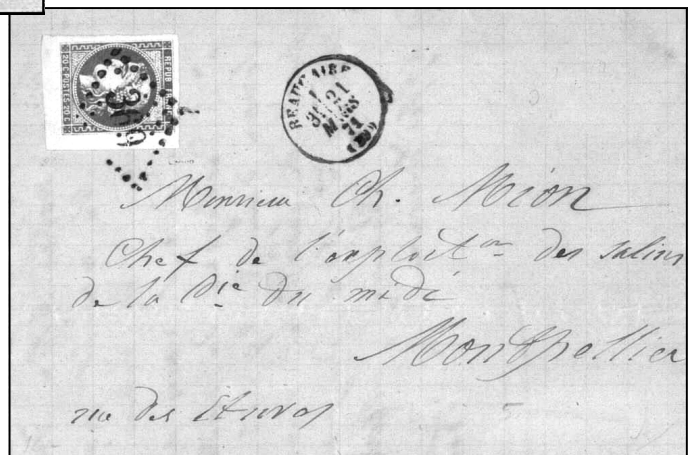 20 C. POSTES 20 C.
REPUB
BEAUCAIRE
1
21
MARS
71
Monsieur Ch. Mion
Chef de l'exploit^on des salins
de la Cie du midi
Montpellier
rue des Etuves